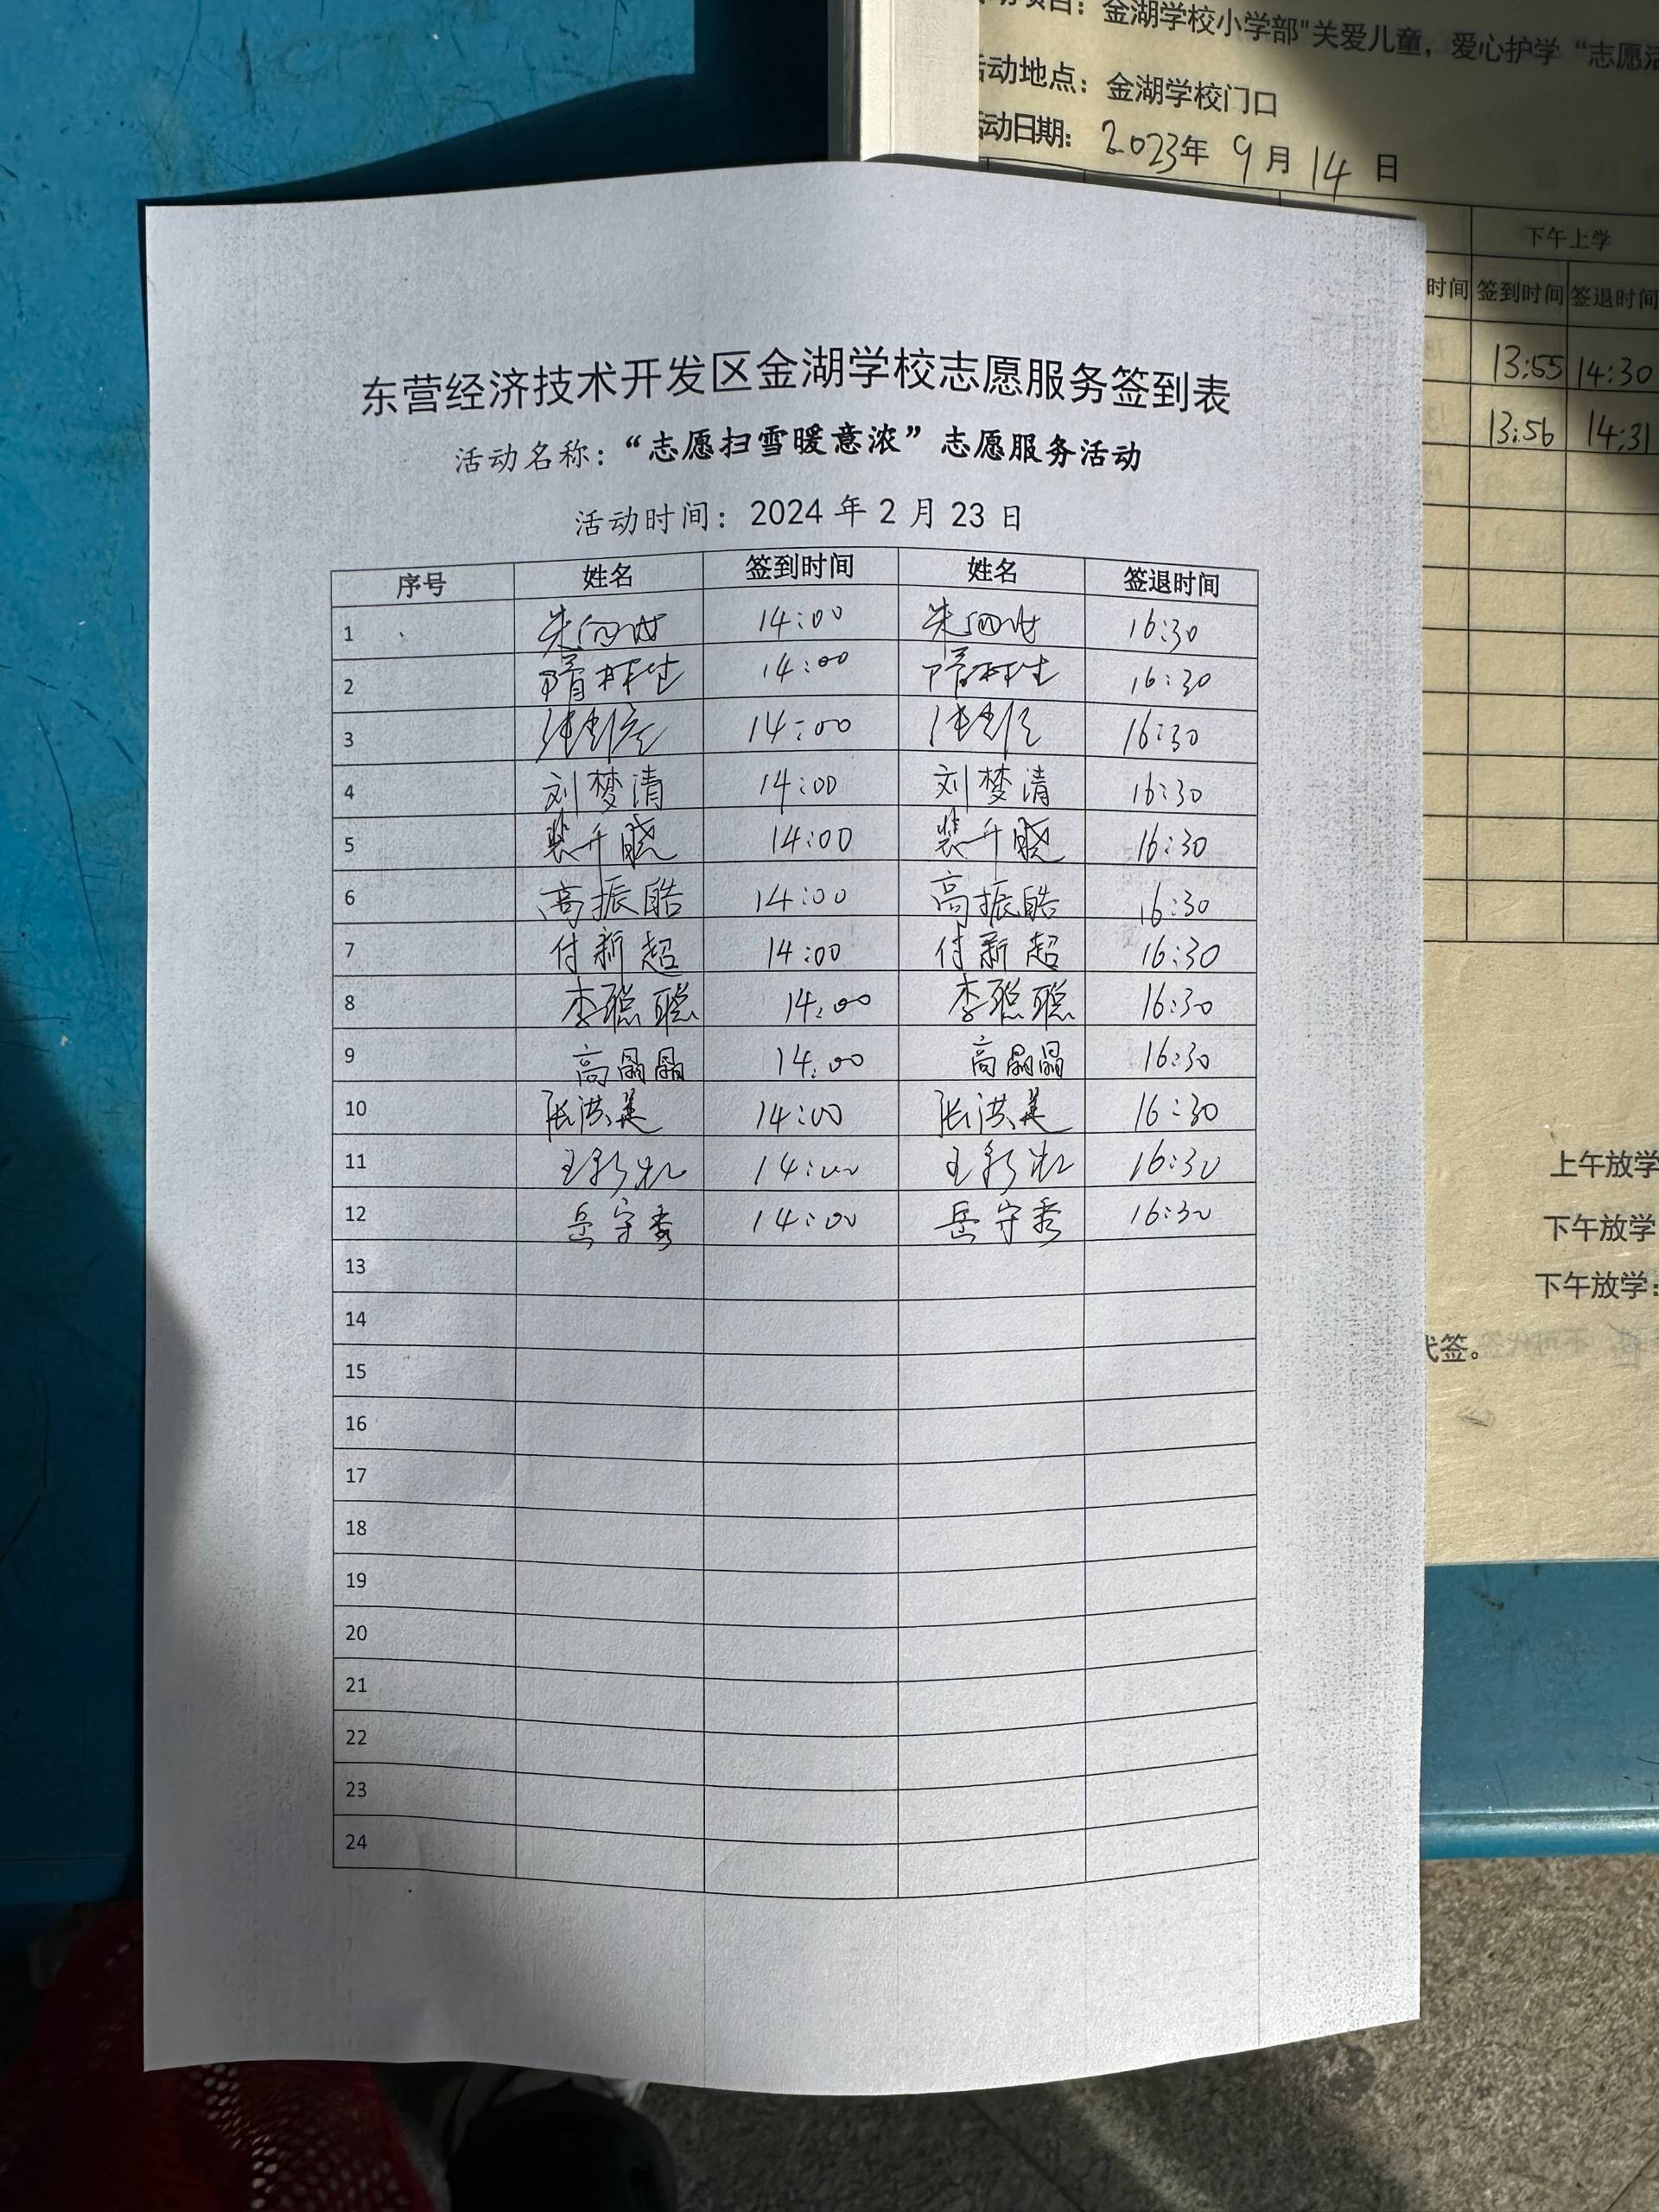 金湖学校小学部"关爱儿童，爱心护学“志愿活
活动地点：金湖学校门口
活动日期：2023年 9 月 14 日
下午上学
时间 签到时间 签退时间
13:55 14:30
13:56 14:31
东营经济技术开发区金湖学校志愿服务签到表
活动名称：“志愿扫雪暖意浓”志愿服务活动
活动时间：2024 年 2 月 23 日
序号 姓名 签到时间 姓名 签退时间
1 朱 14:00 朱 16:30
2 隋 14:00 隋 16:30
3 14:00 16:30
4 刘梦清 14:00 刘梦清 16:30
5 裴千晓 14:00 裴千晓 16:30
6 高振皓 14:00 高振皓 16:30
7 付新超 14:00 付新超 16:30
8 李聪聪 14:00 李聪聪 16:30
9 高晶晶 14:00 高晶晶 16:30
10 张洪美 14:00 张洪美 16:30
11 王彩 14:00 王彩 16:30
12 岳守秀 14:00 岳守秀 16:30
13
14
15
16
17
18
19
20
21
22
23
24
上午放学
下午放学
下午放学：
代签。